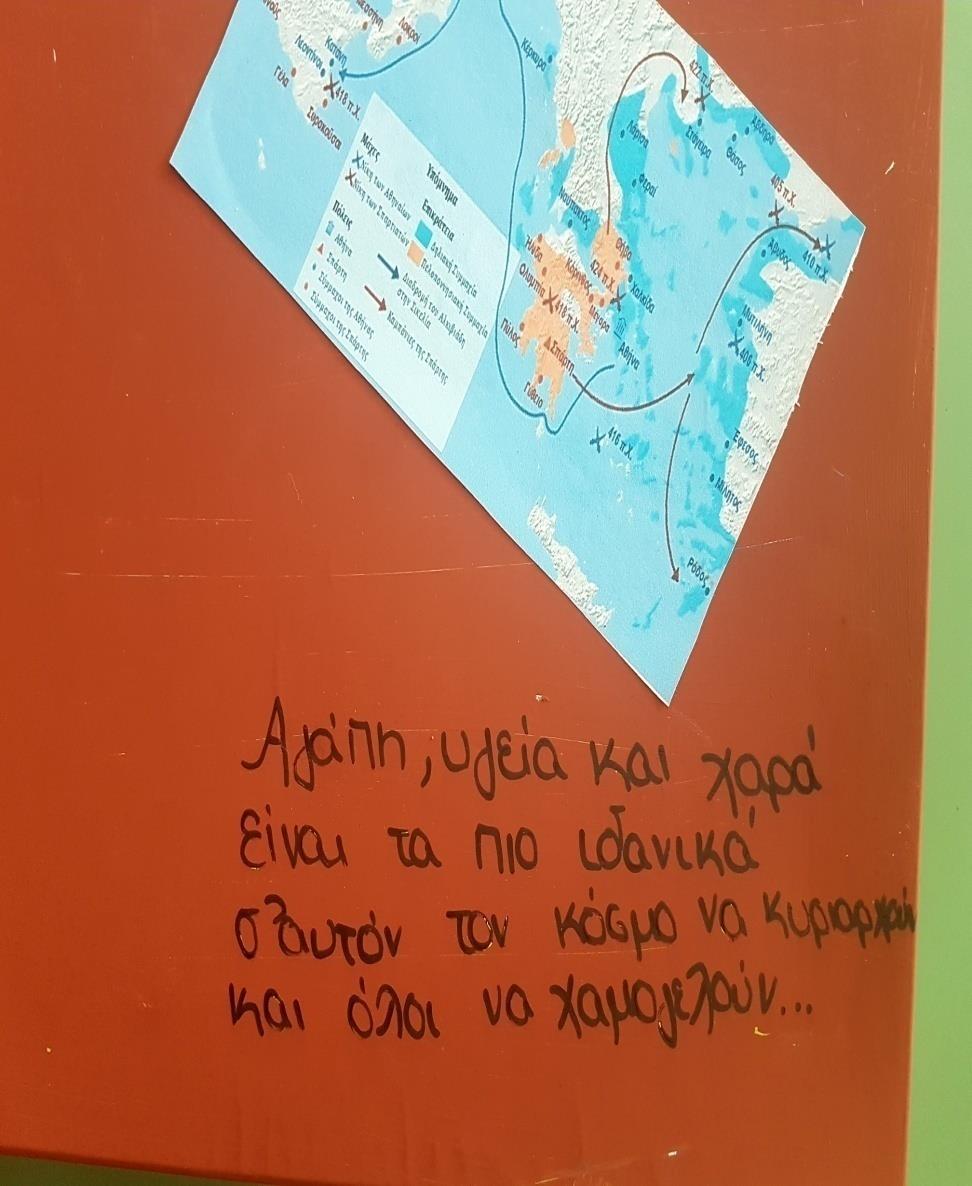 Λοκροί
Κατάνη
Λεοντίνοι
Γέλα
418 π.Χ.
Συρακούσαι
Κέρκυρα
422 π.Χ.
Λάρισα
Στάγειρα
Θάσος
Άβδηρα
405 π.Χ.
410 π.Χ.
Άβυδος
Φεραί
Ναύπακτος
Θήβα
424 π.Χ.
Χαλκίδα
Ήλιδα
Κόρινθος
Ολυμπία
418 π.Χ.
Μέγαρα
Αθήνα
Πύλος
Σπάρτη
Γύθειο
Μυτιλήνη
406 π.Χ.
416 π.Χ.
Έφεσος
Μίλητος
Ρόδος
Υπόμνημα
Μάχες
Νίκη των Αθηναίων
Νίκη των Σπαρτιατών
Πόλεις
Αθήνα
Σπάρτη
Σύμμαχοι της Αθήνας
Σύμμαχοι της Σπάρτης
Επικράτεια
Δηλιακή Συμμαχία
Πελοποννησιακή Συμμαχία
Διαδρομή του Αλκιβιάδη
στην Σικελία
Εκστρατείες της Σπάρτης
Αγάπη, υγεία και χαρά
είναι τα πιο ιδανικά
σ'αυτόν τον κόσμο να κυριαρχούν
και όλοι να χαμογελούν...